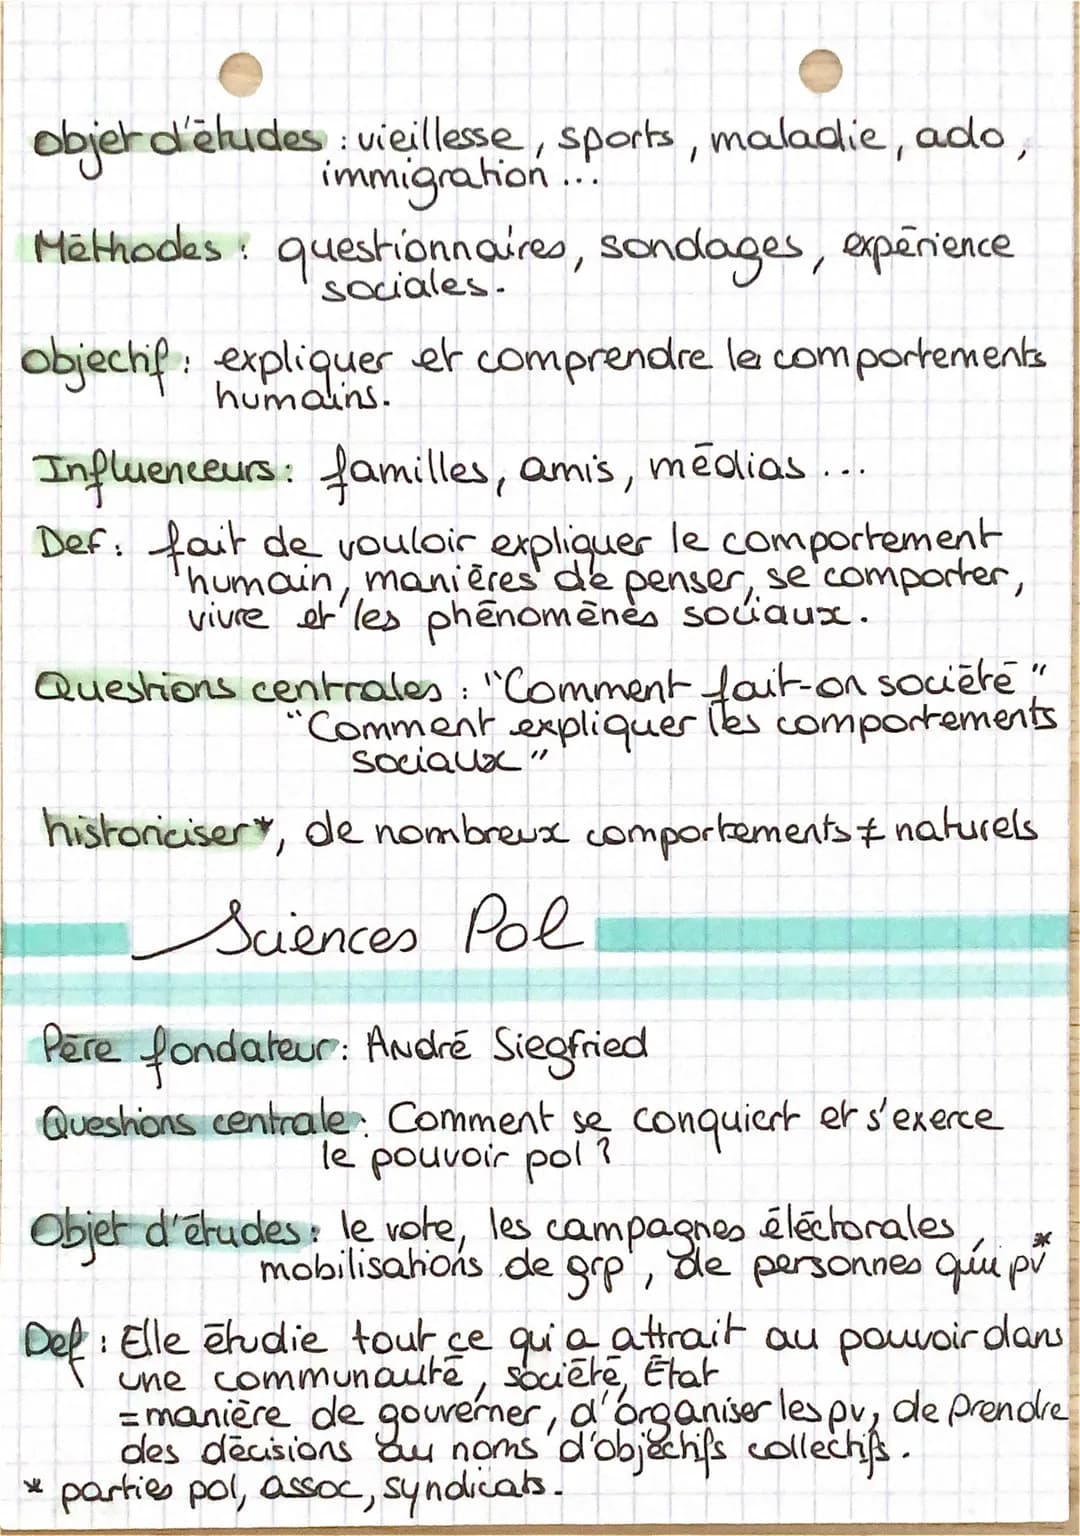 objet d'études : vieillesse, sports, maladie, ado,
immigration ...
Méthodes : questionnaires, sondages, expérience
sociales.
objectif : expliquer et comprendre le comportements
humains.
Influenceurs : familles, amis, médias ...
Def : fait de vouloir expliquer le comportement
humain, manières de penser, se comporter,
vivre et les phénomènes sociaux.
Questions centrales : "Comment fait-on société"
"Comment expliquer les comportements
sociaux"
historiciser*, de nombreux comportements ≠ naturels
Sciences Pol
Père fondateur : André Siegfried
Questions centrale : Comment se conquiert et s'exerce
le pouvoir pol ?
Objet d'études : le vote, les campagnes éléctorales,
mobilisations de grp, de personnes qui pv*
Def : Elle étudie tout ce qui a attrait au pouvoir dans
une communauté, société, État
= manière de gouverner, d'organiser les pv, de prendre
des décisions au noms d'objectifs collectifs.
* parties pol, assoc, syndicats.